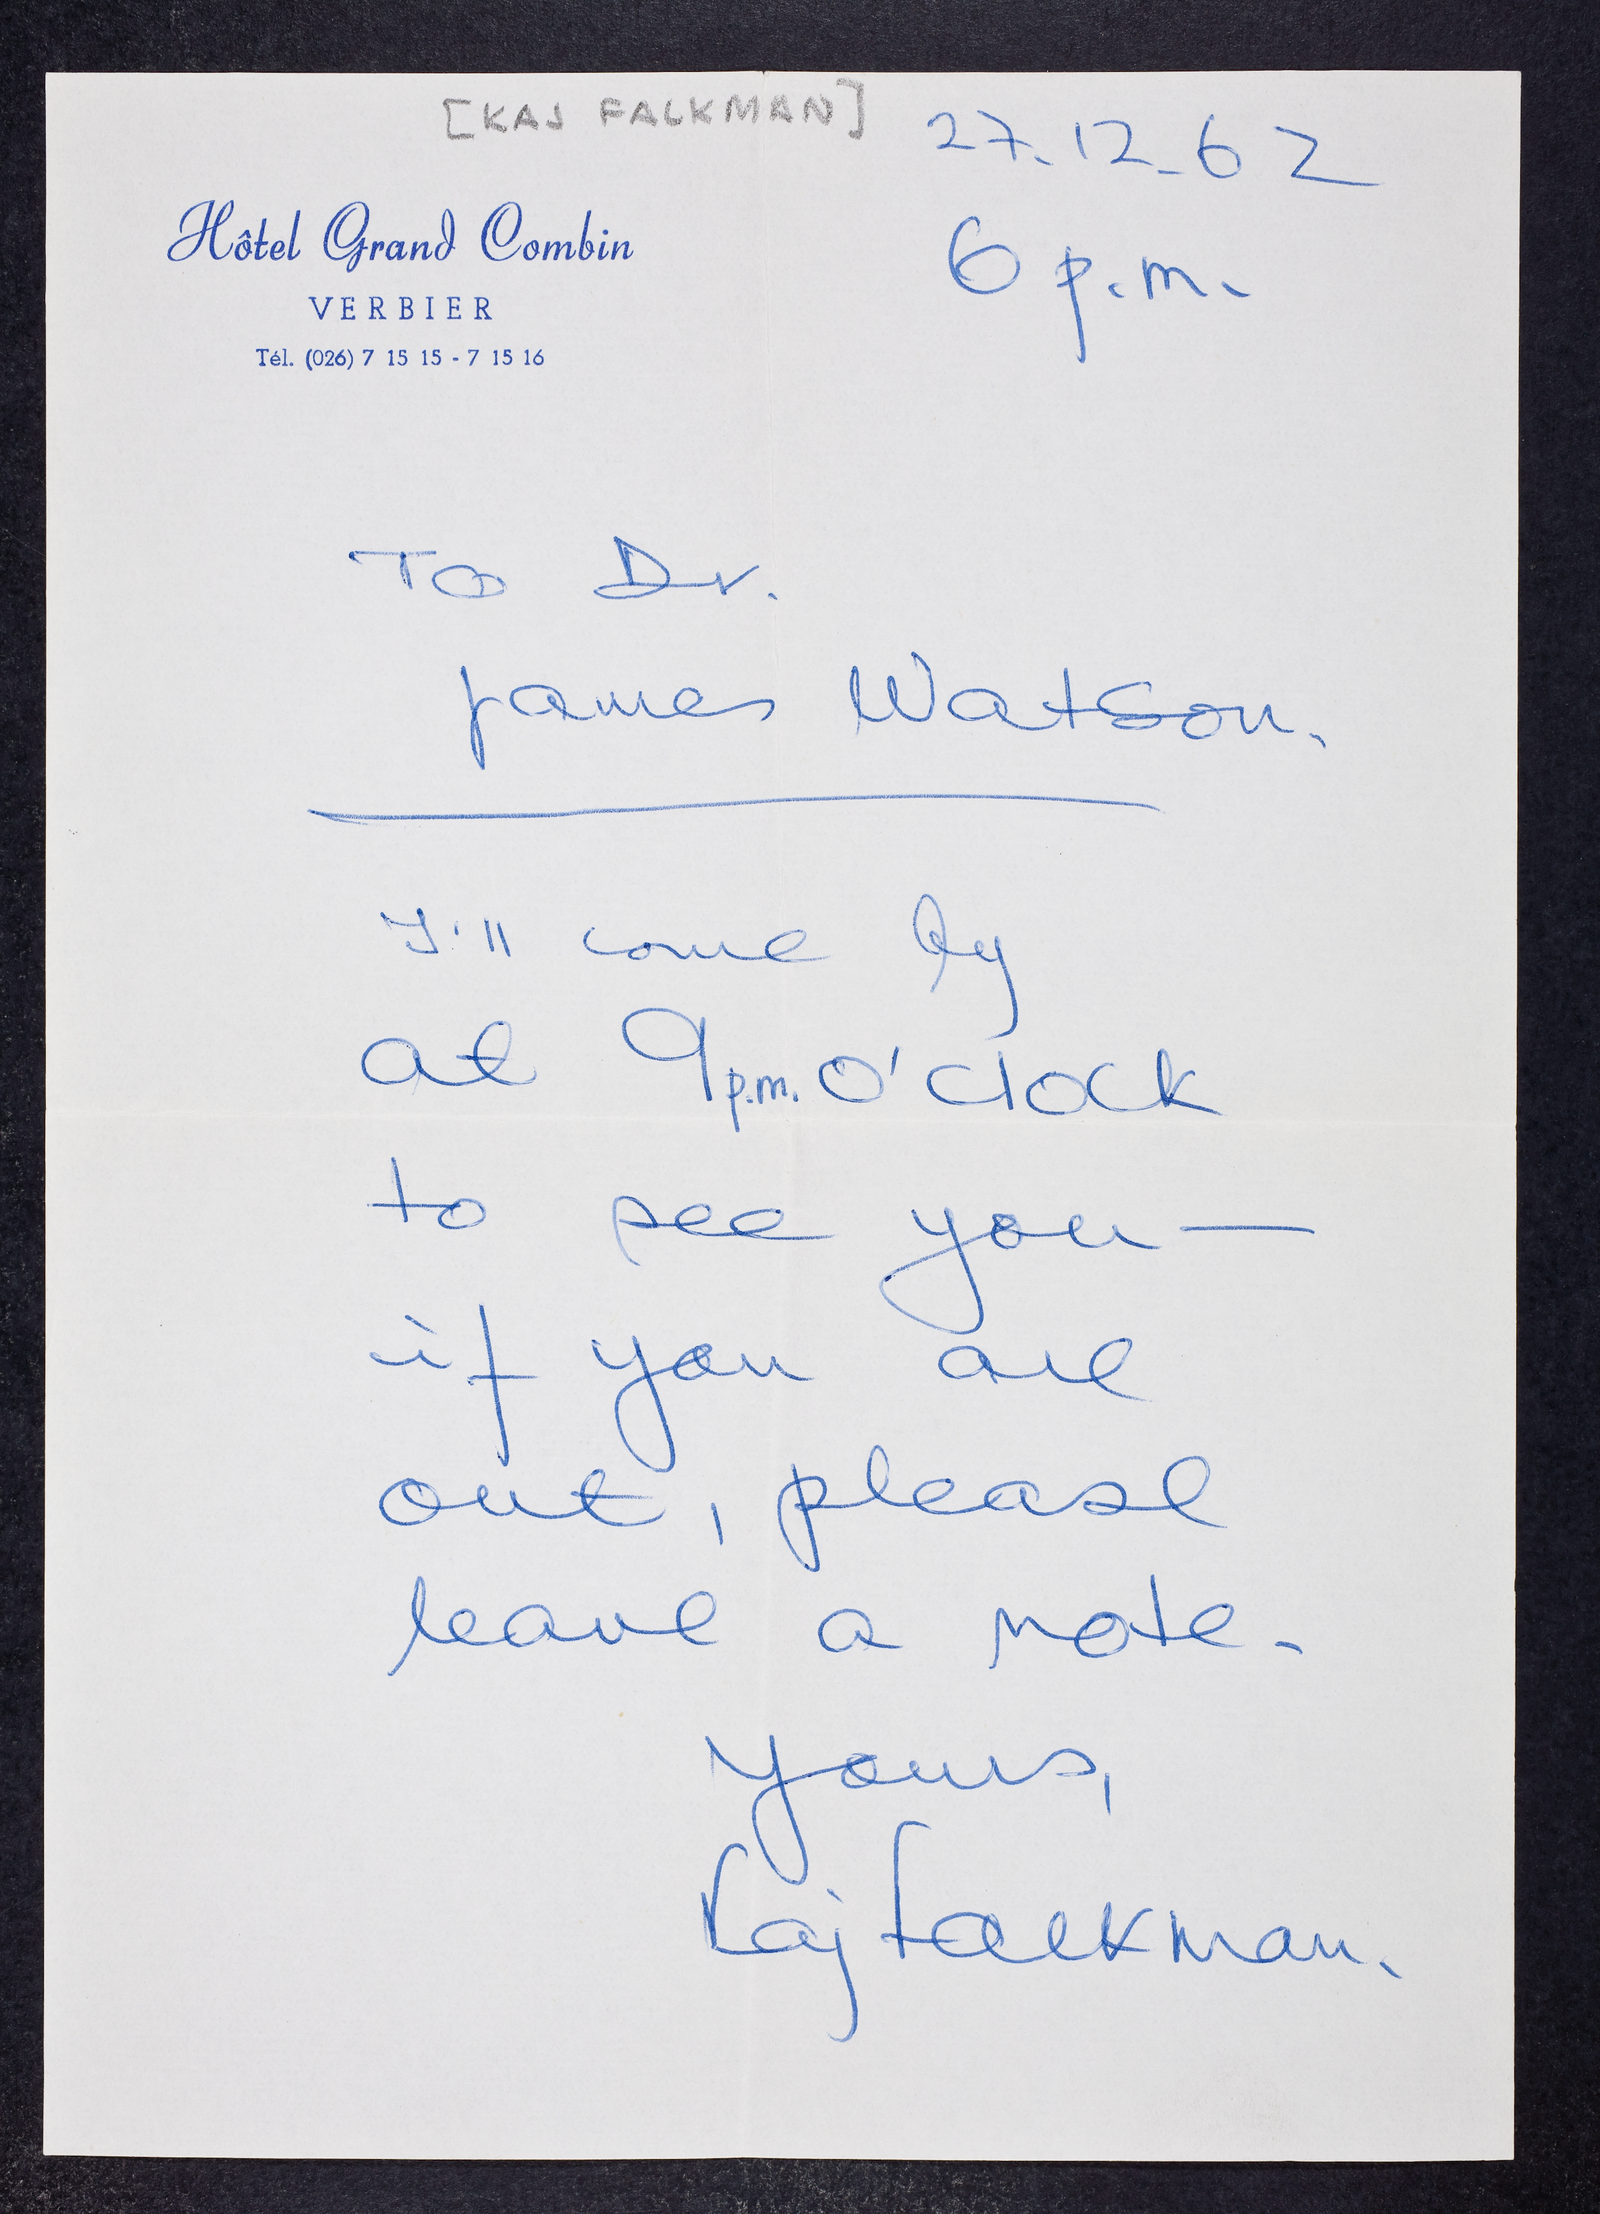 [KAJ FALKMAN]
27.12.62
6 p.m.
Hôtel Grand Combin
VERBIER
Tél. (026) 7 15 15 - 7 15 16
To Dr.
James Watson.
I'll come by
at 9 p.m. o'clock
to see you—
if you are
out, please
leave a note.
Yours,
Kaj Falkman.